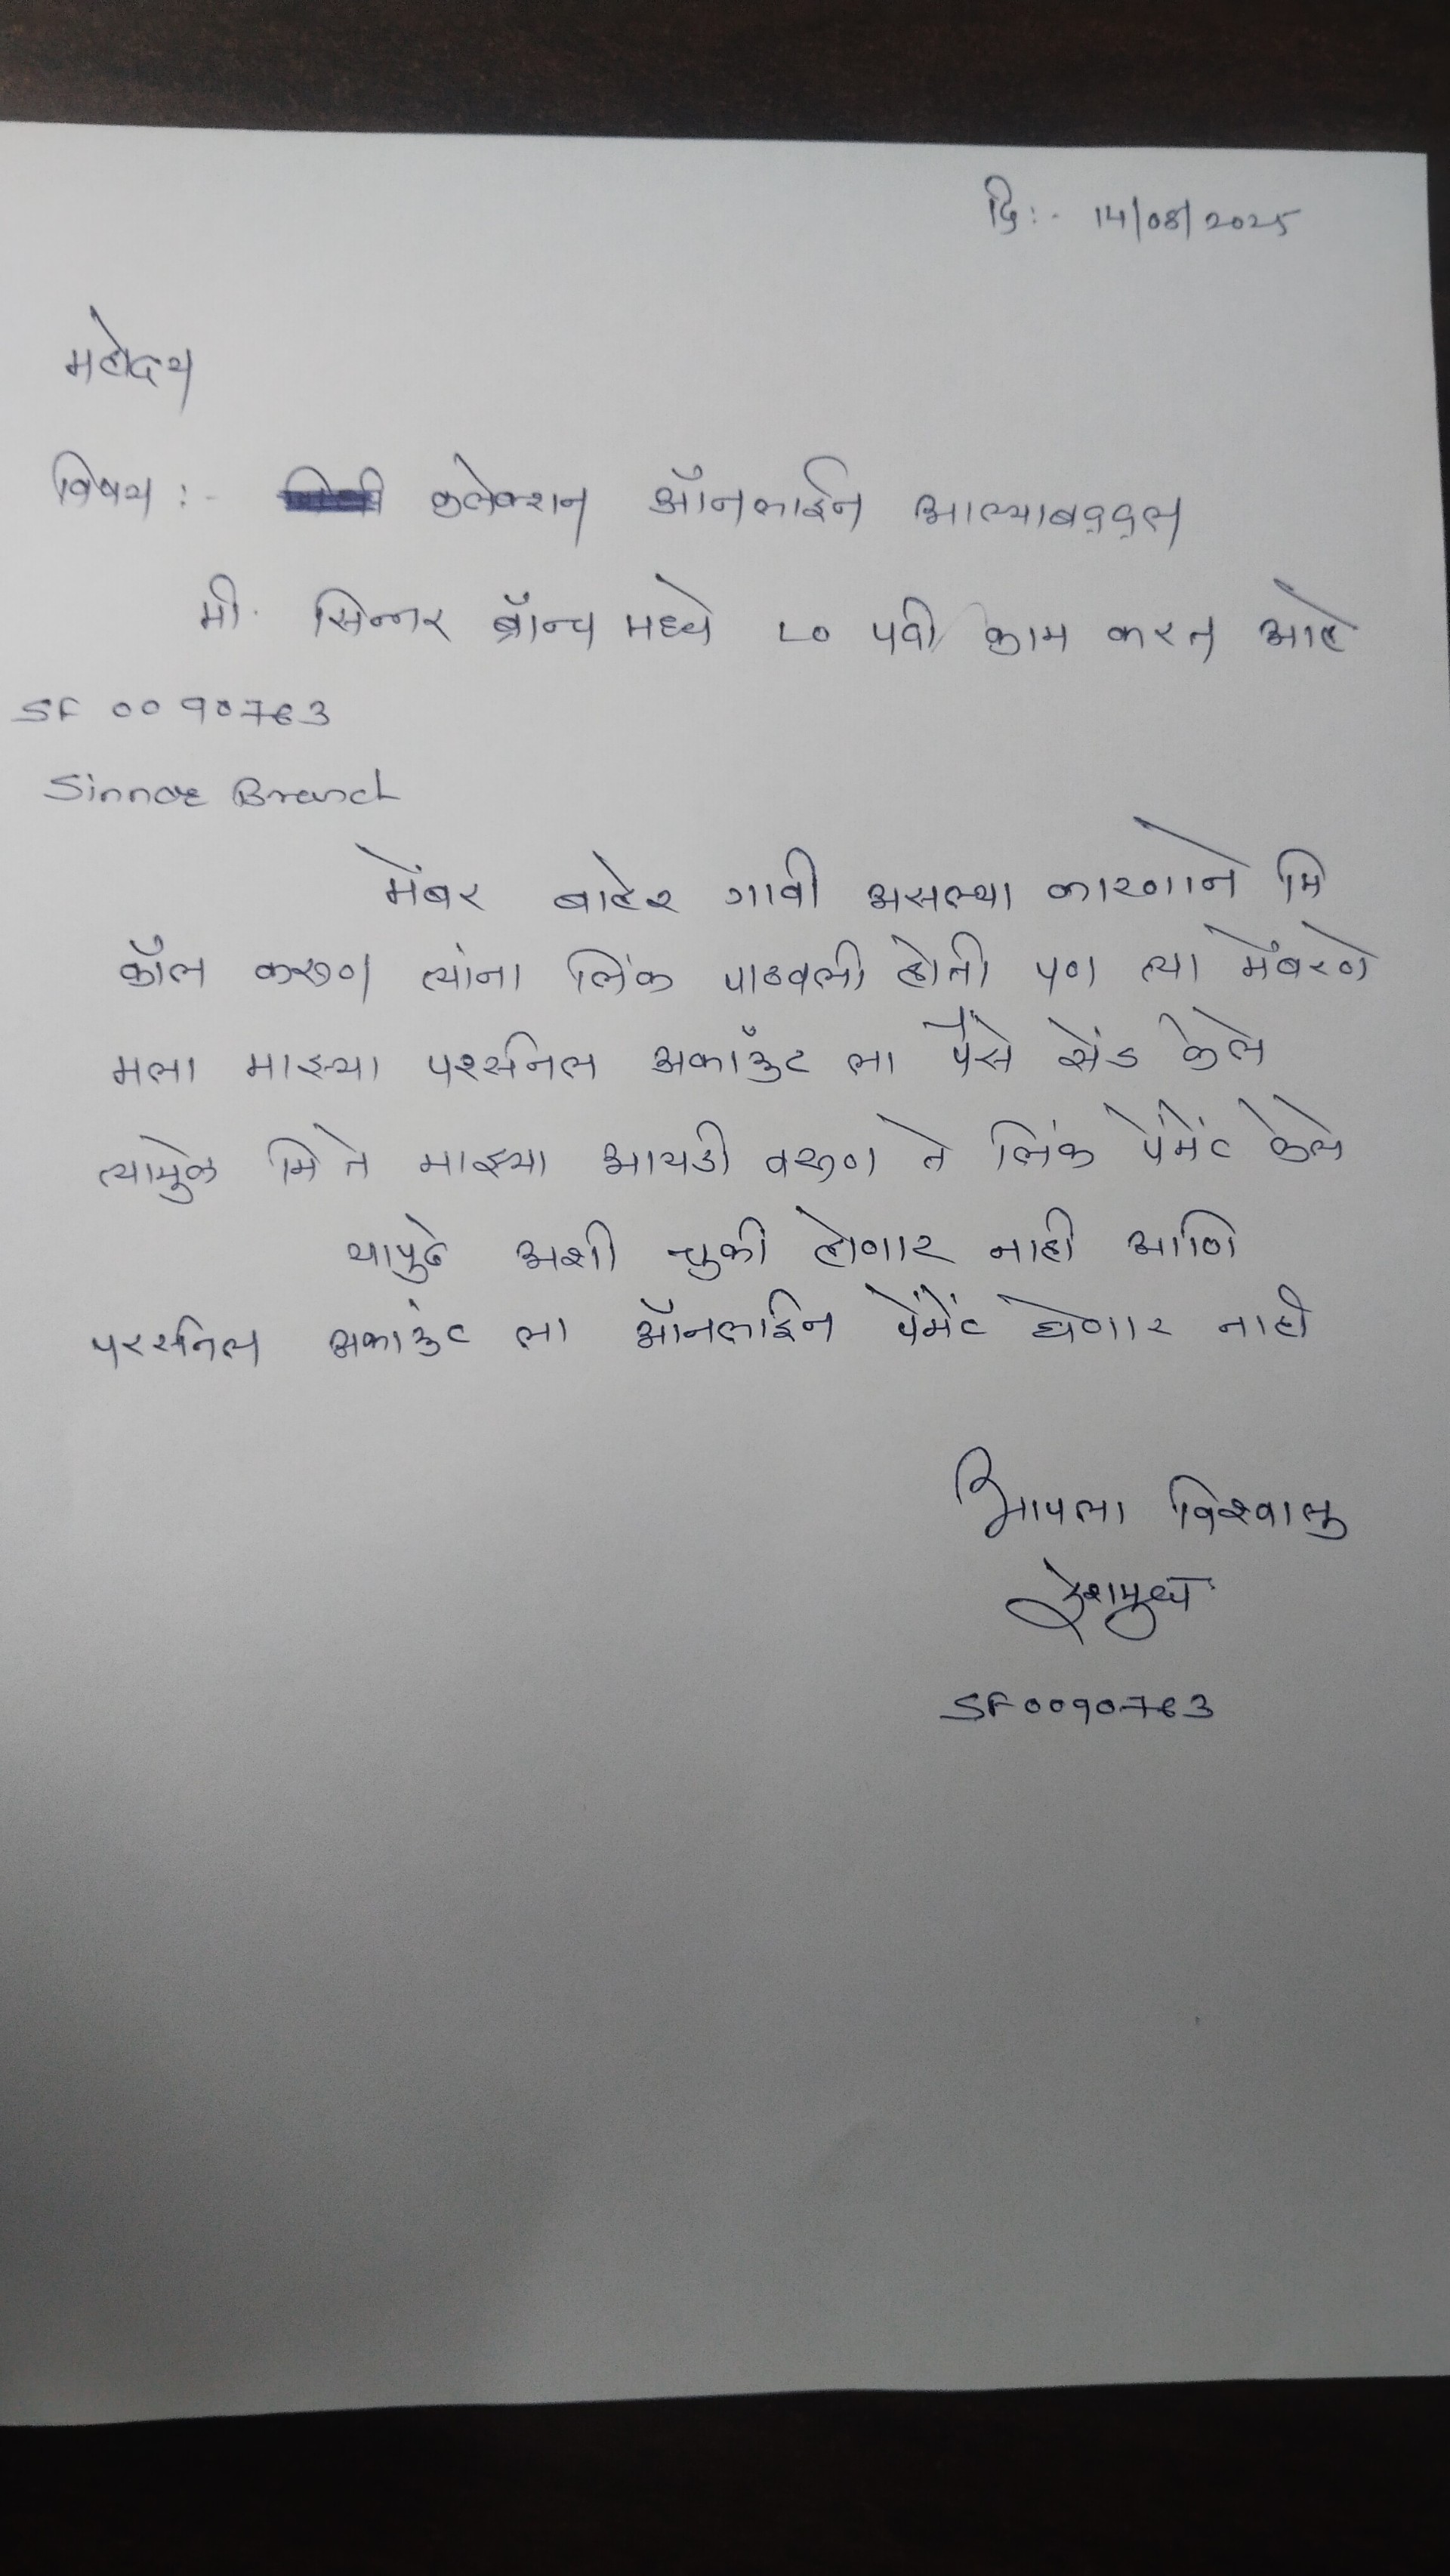 दि:- 14/08/2025
महोदय
विषय :- कलेक्शन ऑनलाईन आल्याबद्दल
मी. सिन्नर ब्रॉन्च मध्ये LO पदी काम करत आहे
SF 0090763
Sinnar Branch
मेंबर बाहेर गावी असल्या कारणाने मि
कॉल करुण त्यांना लिंक पाठवली होती पण त्या मेंबरणे
मला माझ्या पर्सनल अकाँउंट ला पैसे सेंड केले
त्यामुळे मि ते माझ्या आयडी वरुण ते लिंक पेंमेंट केले
यापुढे अशी चुकी होणार नाही आणि
परर्सनल अकांउंट ला ऑनलाईन पेंमेंट घेणार नाही
आपला विश्वासु
देशमुख
SF0090763